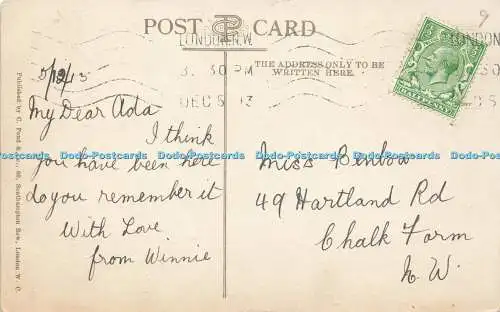 POST CARD
9
LONDON. N.W.
3. 30 PM
DEC 5 13
THE ADDRESS ONLY TO BE
WRITTEN HERE.
5/12/13
My Dear Ada
I think
you have been here
do you remember it
With Love
from Winnie
Miss Benbow
49 Hartland Rd
Chalk Farm
N. W.
Published by C. Pond &
Southampton Row, London W. C.
Dodo-Postcards Dodo-Postcards Dodo-Postcards Dodo-Postcards Dodo-Postcards